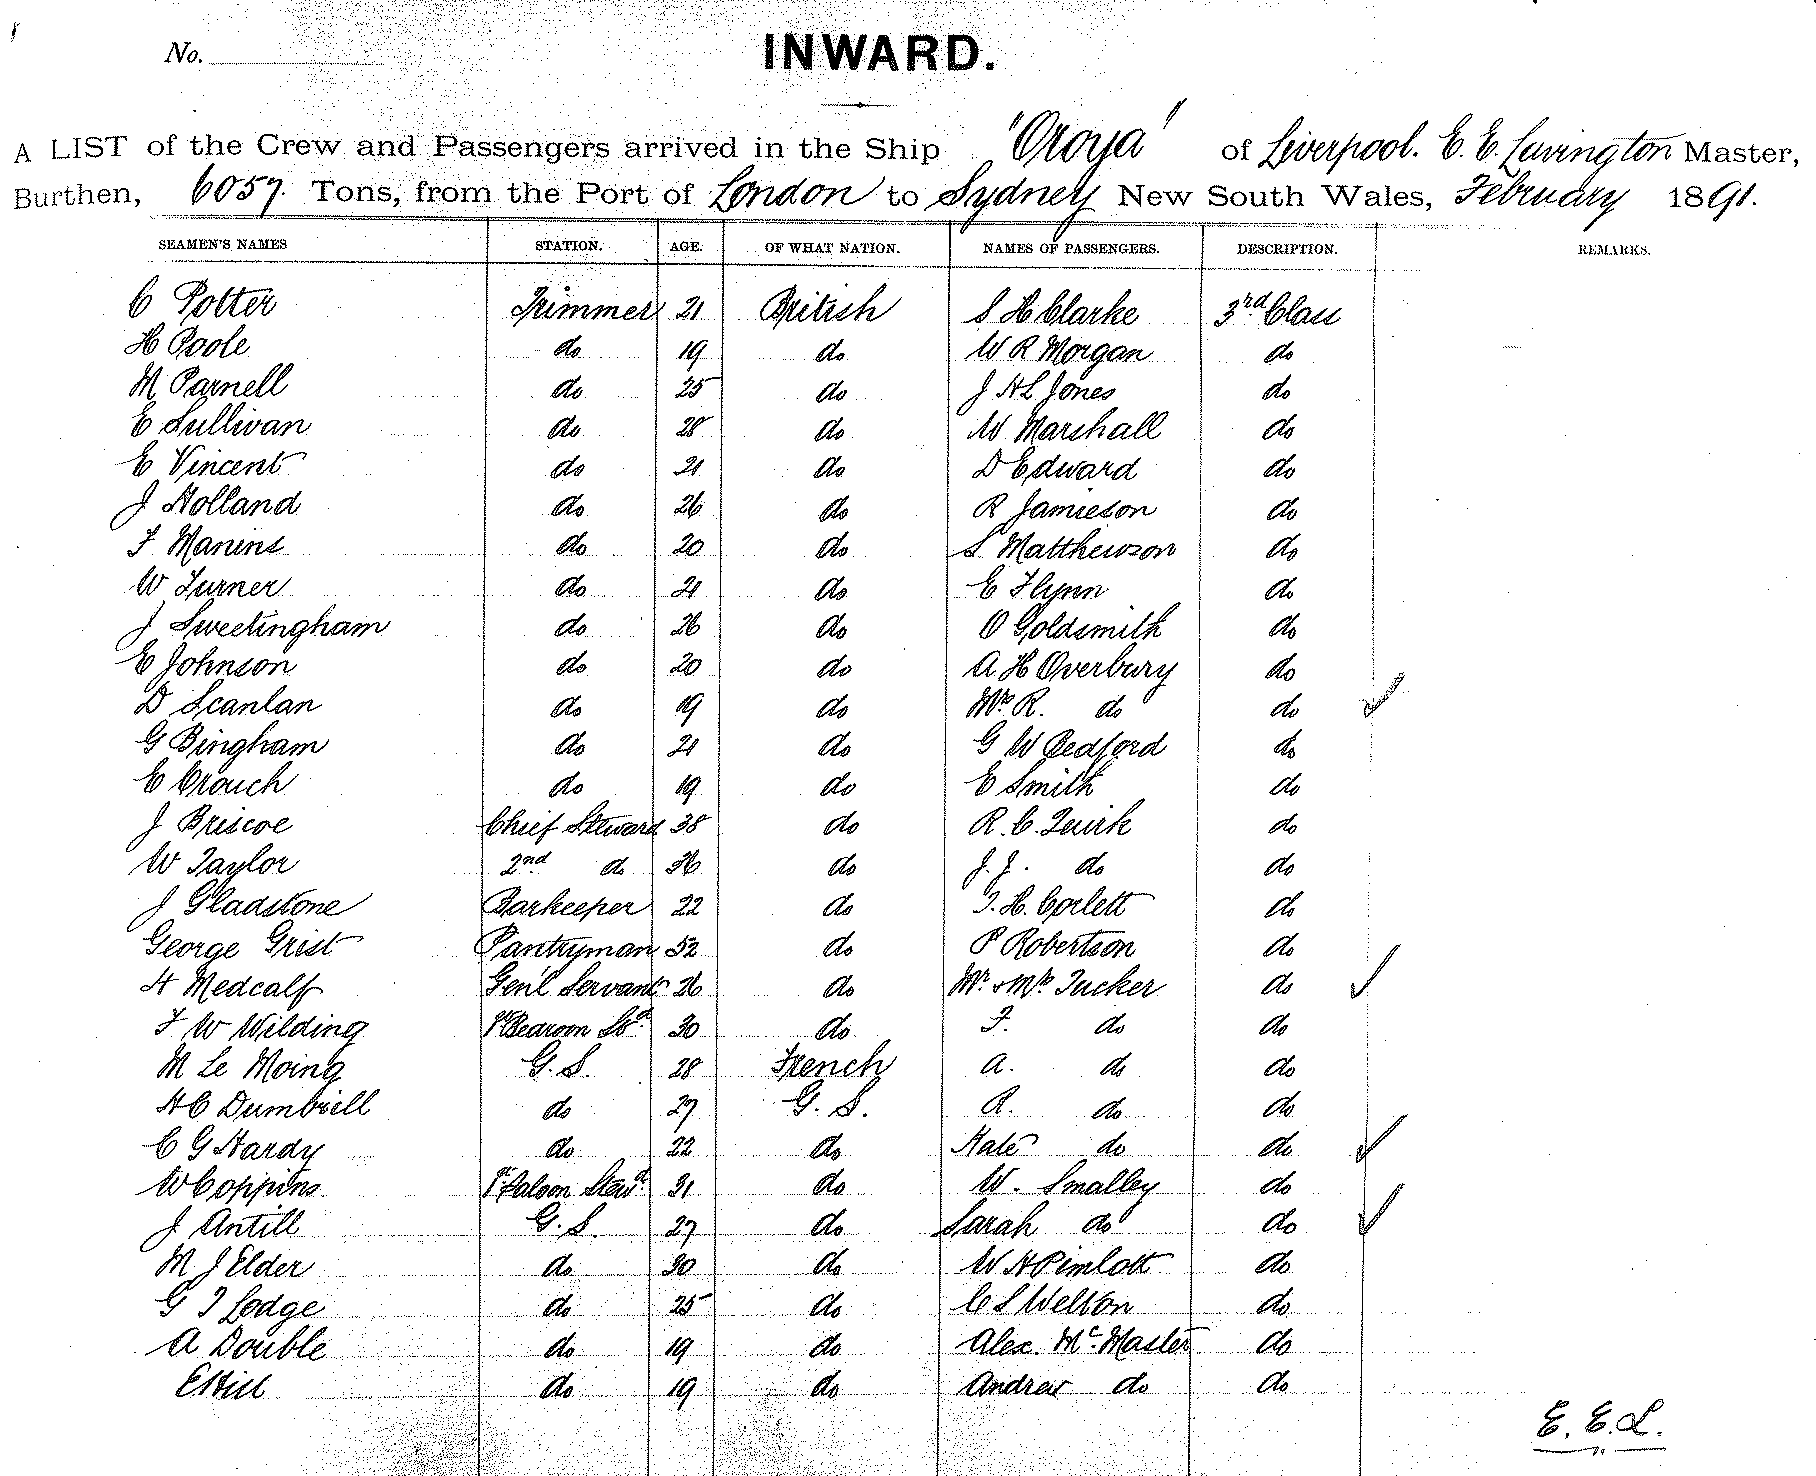 No.
INWARD.
A LIST of the Crew and Passengers arrived in the Ship "Oroya" of Liverpool. E. E. Lavington Master,
Burthen, 6057. Tons, from the Port of London to Sydney New South Wales, February 1891.
SEAMEN'S NAMES STATION. AGE. OF WHAT NATION. NAMES OF PASSENGERS. DESCRIPTION. REMARKS.
C Potter Trimmer 21 British S H Clarke 3rd Class
H Poole do 19 do W R Morgan do
M Parnell do 25 do J H L Jones do
E Sullivan do 28 do W Marshall do
E Vincent do 21 do D Edward do
J Holland do 26 do R Jamieson do
F Manins do 20 do S Matthewson do
W Turner do 21 do E Flynn do
J Sweetingham do 26 do O Goldsmith do
E Johnson do 20 do A H Overbury do
D Scanlan do 19 do Mrs R. do do
G Bingham do 21 do G W Pedford do
E Crouch do 19 do E Smith do
J Briscoe Chief Steward 38 do R. C. Quirk do
W Taylor 2nd do 36 do J. J. do do
J Gladstone Barkeeper 22 do T. H. Corlett do
George Grist Pantryman 52 do P Robertson do
H Medcalf Gen'l Servant 26 do Mr. & Mrs Tucker do
F W Wilding 30 do F. do do
M Le Moing G. S. 28 French A. do do
H C Dumbrell do 27 G. S. R. do do
C G Hardy do 22 do Kate do do
W Coppins 1st Saloon Stewd. 31 do W. Smalley do
J Antill G. S. 27 do Sarah do do
M J Elder do 30 do W H Pimlott do
G T Lodge do 25 do C S Welton do
A Double do 19 do Alex. McMaster do
E Hill do 19 do Andrew do do
E. E. L.